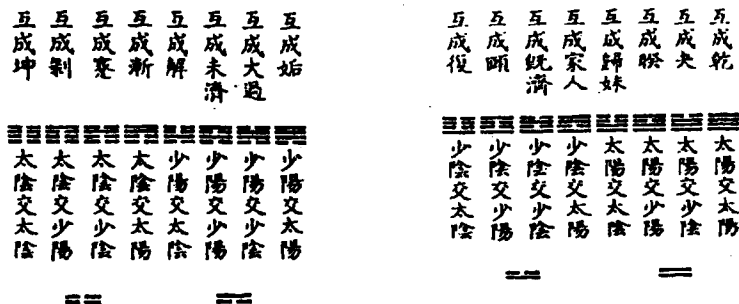 互成乾
互成夬
互成睽
互成歸妹
互成家人
互成既濟
互成頤
互成復
太陽交太陽
太陽交少陰
太陽交少陽
太陽交太陰
少陰交太陽
少陰交少陰
少陰交少陽
少陰交太陰
互成姤
互成大過
互成未濟
互成解
互成漸
互成蹇
互成剝
互成坤
少陽交太陽
少陽交少陰
少陽交少陽
少陽交太陰
太陰交太陽
太陰交少陰
太陰交少陽
太陰交太陰